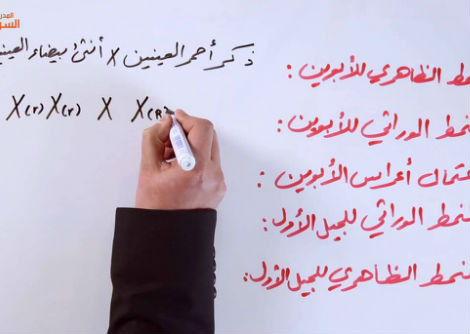 المدر
السو
ذكر أحمر العينين X أنثى بيضاء العينين
X(r) X(r) X X(R)
النمط الظاهري للأبوين :
النمط الوراثي للأبوين :
احتمال أعراس الأبوين :
النمط الوراثي للجيل الأول :
النمط الظاهري للجيل الأول :